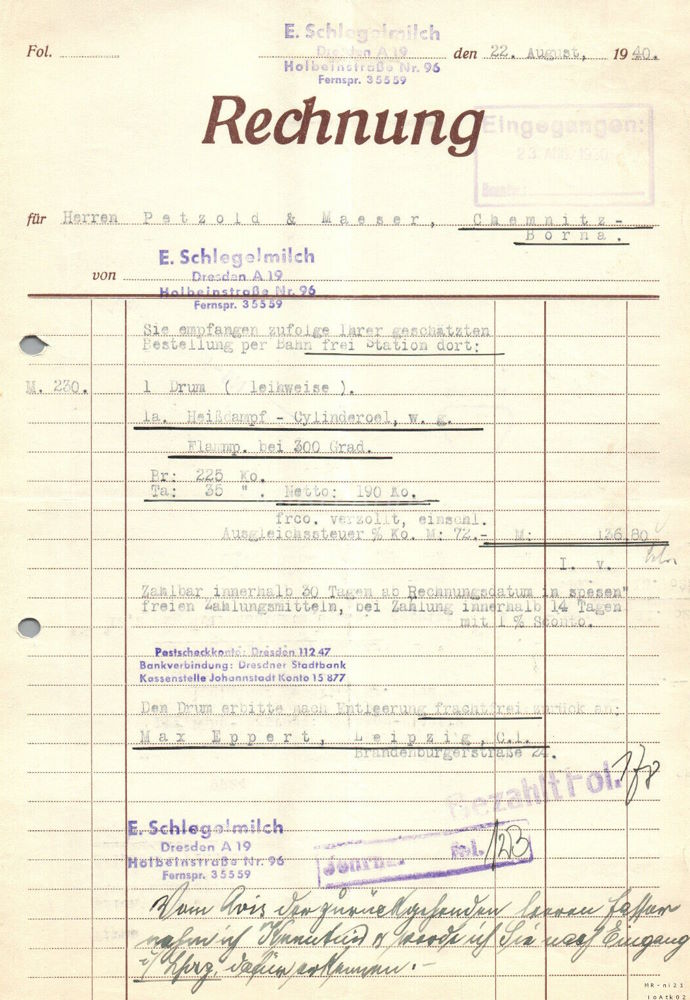 E. Schlegelmilch
Dresden A 19
Fol. den 22. August, 1940.
Holbeinstraße Nr. 96
Fernspr. 35559
Rechnung
Eingegangen:
23. AUG.
für Herren Petzold & Maeser, Chemnitz-
Borna.
E. Schlegelmilch
von Dresden A 19
Holbeinstraße Nr. 96
Fernspr. 35559
Sie empfangen zufolge Ihrer geschätzten
Bestellung per Bahn frei Station dort:
M. 230. 1 Drum ( leihweise ).
1a. Heißdampf - Cylinderoel, w. g.
Flammp. bei 300 Grad.
Br: 225 Ko.
Ta: 35 ". Netto: 190 Ko.
frco. verzollt, einschl.
Ausgleichssteuer % Ko. M: 72.- M: 136,80
I. v.
Zahlbar innerhalb 30 Tagen ab Rechnungsdatum in spesen"
freien Zahlungsmitteln, bei Zahlung innerhalb 14 Tagen
mit 1 % Sconto.
Postscheckkonto: Dresden 112 47
Bankverbindung: Dresdner Stadtbank
Kassenstelle Johannstadt Konto 15 877
Den Drum erbitte nach Entleerung frachtfrei zurück an:
Max Eppert, Leipzig, C.1.
Brandenburgerstraße 24.
Bezahlt Fol. 178
E. Schlegelmilch
Dresden A 19
Journal Fol. 123
Holbeinstraße Nr. 96
Fernspr. 35559
Vom Avis der zurückgehenden leeren Fässer
nahm ich Kenntnis & werde ich Sie nach Eingang
dafür erkennen.-
MR-ni21